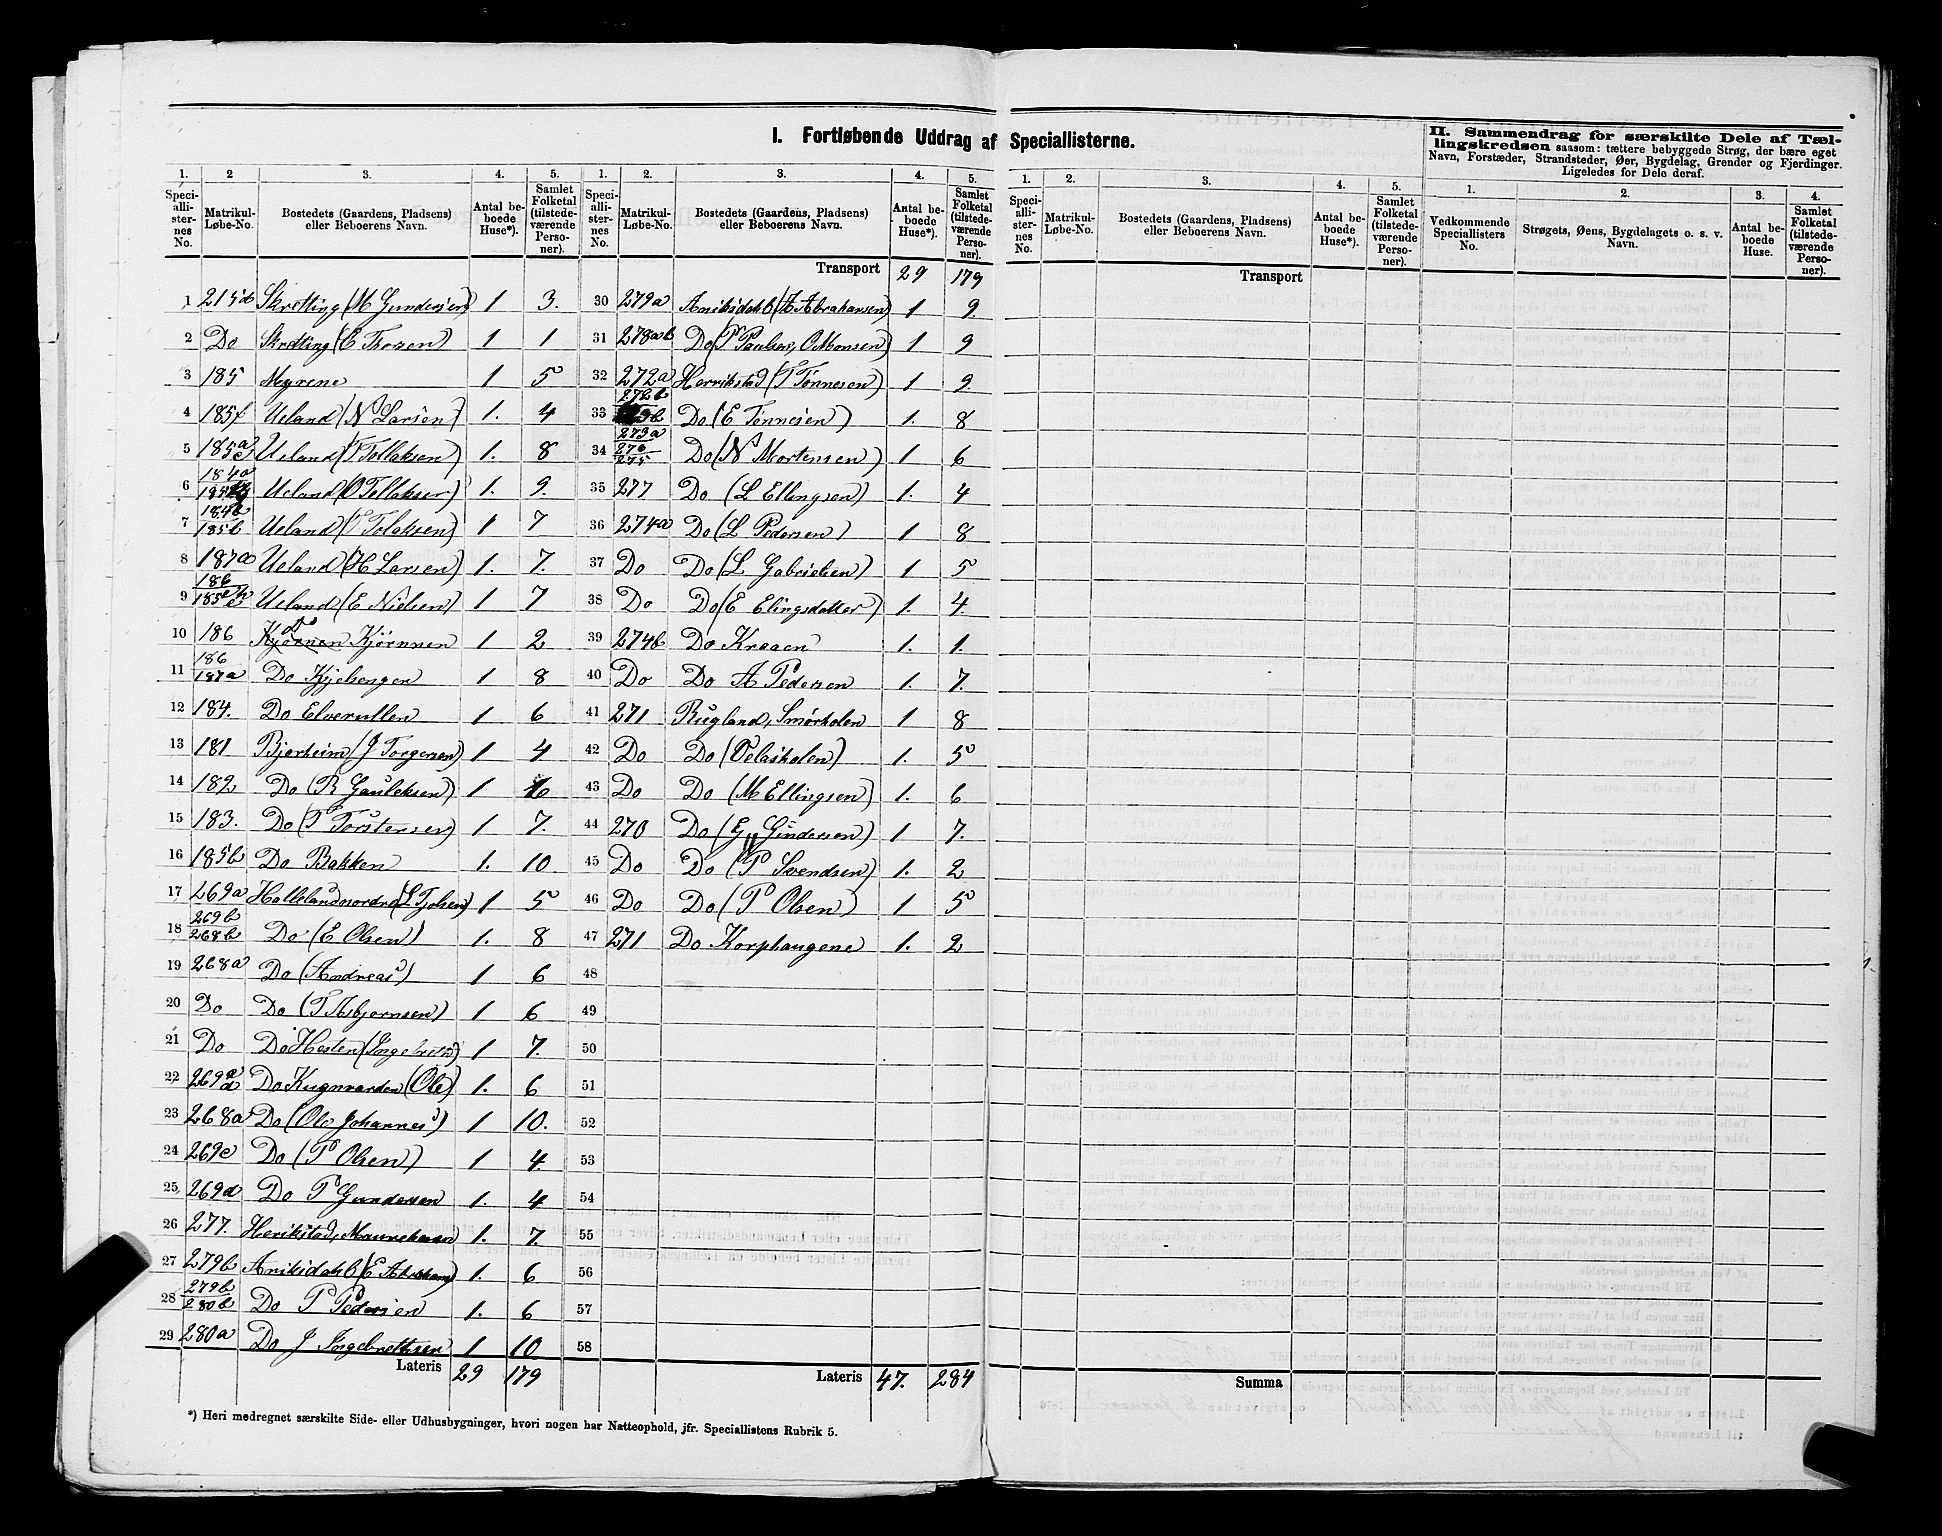 I. Fortløbende Uddrag af Speciallisterne.
II. Sammendrag for særskilte Dele af Tæl-
lingskredsen saasom: tættere bebyggede Strøg, der bære eget
Navn, Forstæder, Strandsteder, Øer, Bygdelag, Grender og Fjerdinger.
Ligeledes for Dele deraf.
1. 2 3. 4. 5. 1. 2. 3. 4. 5. 1. 2. 3. 4. 5. 1. 2. 3. 4.
Speci-alli-ster-nes No. Matrikul-Løbe-No. Bostedets (Gaardens, Pladsens) eller Beboerens Navn. Antal be-boede Huse*). Samlet Folketal (tilstede-værende Perso-ner).
Speci-alli-ster-nes No. Matrikul-Løbe-No. Bostedets (Gaardens, Pladsens) eller Beboerens Navn. Antal be-boede Huse*). Samlet Folketal (tilstede-værende Perso-ner).
Speci-alli-ster-nes No. Matrikul-Løbe-No. Bostedets (Gaardens, Pladsens) eller Beboerens Navn. Antal be-boede Huse*). Samlet Folketal (tilstede-værende Perso-ner).
Vedkommende Speciallisters No. Strøgets, Øens, Bygdelagets o. s. v. Navn. Antal be-boede Huse. Samlet Folketal (tilstede-værende Perso-ner).
1 Skretting (M Gundersen) 1 3.
2 Do Skretting (E Thorsen) 1 1
3 185 Myrene 1 5
4 185f Ueland (N Larsen) 1. 4
5 185a Ueland (T Tollaksen) 1. 8
6 184a Ueland (O Tollaksen) 1. 9.
7 184b 185b Ueland (T Tolaksen) 1 7
8 187a Ueland (H Larsen) 1. 7.
9 186 185 Ueland (E Nielsen) 1 7
10 186 Do Kjørnnen 1 2
11 186 187a Do Kjelsengen 1 8
12 184. Do Elverullen 1 6
13 181 Bjerheim (J Torgersen) 1 4
14 182 Do (R Gauleksen) 1 6
15 183. Do (T Torstensen) 1 7.
16 185b Do Bakken 1. 10
17 269a Hallelandnordre (L Tjolsen) 1 5
18 269b 268b Do (E Olsen) 1. 8
19 268a Do (Andreas) 1 6
20 Do Do (T Asbjornsen) 1 6
21 Do Do Hesten (Ingebrets) 1 7.
22 269 Do (Ole) 1. 6
23 268a Do (Ole Johannes) 1 10.
24 269c Do (P Olsen) 1 4.
25 269d Do P Gundersen 1. 4
26 277. Herikstad, 1. 7.
27 279b Anikidahl (E 1. 6
28 279b 280b Do P Pedersen 1. 6
29 280a Do J Ingebrethsen 1 10
Lateris 29 179
Transport 29 179
30 279a Anikidahl (A Abrahamsen) 1 9.
31 278ab Do (P Paulsen, O Monsen) 1 9
32 272a Herrikstad (T Tønnesen) 1 9.
33 272b Do (E Tønnesen) 1. 8
34 273a 276 275 Do (N Mortensen) 1 6
35 277 Do (L Ellingsen) 1. 4
36 274a Do (L Pedersen) 1 8
37 Do Do (L Gabrielsen) 1 5
38 Do Do (E Elingsdatter) 1. 4.
39 274b Do Kraaen 1 1.
40 Do Do A Pedersen 1. 7.
41 271 Rugland, Smørholen 1 8
42 Do Do (Pelasholen) 1. 5
43 Do Do (M Ellingsen) 1. 6
44 270 Do (G Gundersen) 1 7.
45 Do Do (P Svendsen) 1. 2
46 Do Do (P Olsen) 1 5
47 271 Do Korphaugene 1. 2
48
49
50
51
52
53
54
55
56
57
58
Lateris 47. 284
Transport
Summa
*) Heri medregnet særskilte Side- eller Udhusbygninger, hvori nogen har Natteophold, jfr. Speciallistens Rubrik 5.